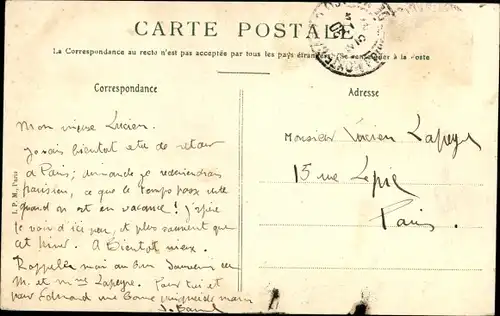 CARTE POSTALE
La Correspondance au recto n'est pas acceptée par tous les pays étrangers (Se renseigner à la Poste
Correspondance
Adresse
Mon vieux Lucien.
bientôt de retour
à Paris;
parisien, ce que le temps passe vite
quand on est en vacance! J'espère
te voir d'ici peu, et plus souvent que
cet hiver. A Bientôt mieux.
Rappelle moi au Bon Souvenir de
M. et Mme Lapeyre. Pour toi et
pour Edmond une bonne poignée de main
Monsieur Lucien Lapeyre
15 rue Lepic
Paris.
I. P. M., Paris